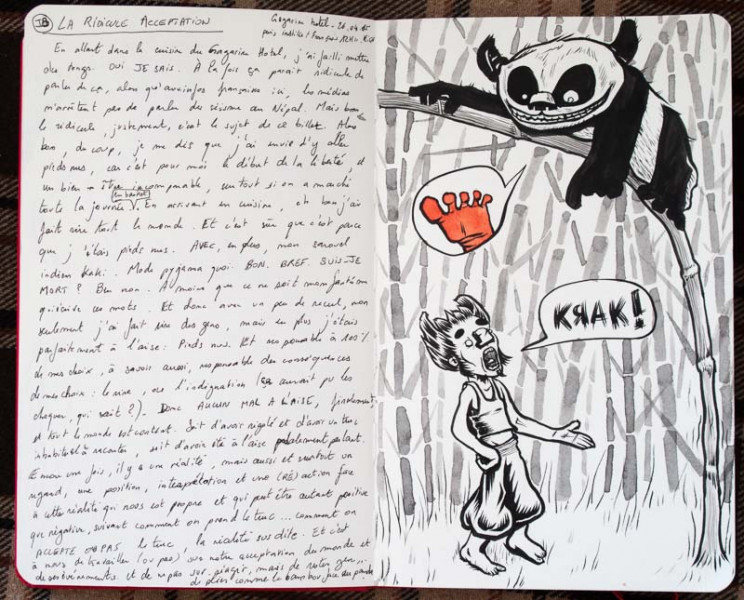 LA RIDICULE ACCEPTATION
Gagarin hotel - 28.04.15
En allant dans la cuisine du Gagarine Hotel, j'ai failli mettre
des tongs. OUI JE SAIS. À la fois ça parait ridicule de
parler de ça, alors qu'aux infos françaises ici, les médias
n'arrêtent pas de parler des séisme au Népal. Mais bon
le ridicule, justement, c'est le sujet de ce billet. Alors
bon, du coup, je me dis que j'ai envie d'y aller
pieds nus, car c'est pour moi le début de la liberté et
un bien-être incomparable, surtout si on a marché
toute la journée en baskets. En arrivant en cuisine, et ben j'ai
fait rire tout le monde. Et c'est sûr que c'est parce
que j'étais pieds nus. AVEC, en plus, mon sarouel
indien kaki. Mode pyjama quoi. BON. BREF. SUIS-JE
MORT ? Ben non. À moins que ce ne soit mon fantôme
qui écrive ces mots. Et donc avec un peu de recul, non
seulement j'ai fait rire des gens, mais en plus j'étais
parfaitement à l'aise: Pieds nus. Et responsable à 100%
de mes choix, à savoir aussi, responsable des conséquences
de mes choix: le rire, ou l'indignation (ça aurait pu les
choquer, qui sait ?). Donc AUCUN MAL À L'AISE, finalement,
et tout le monde est content. Soit d'avoir rigolé et d'avoir un truc
inhabituel à raconter, soit d'avoir été à l'aise parlant.
Encore une fois, il y a une réalité, mais aussi et surtout un
regard, une position, interprétation et une (RÉ)action face
à cette réalité qui nous est propre et qui peut être autant positive
que négative, suivant comment on prend le truc... comment on
ACCEPTE OU PAS le truc, la réalité sus dite. Et c'est
à nous de travailler (ou pas) sur notre acceptation du monde et
des événements et de ne pas sur-réagir, mais de rester zen...
de plier comme le bambou face au panda
KRAK!